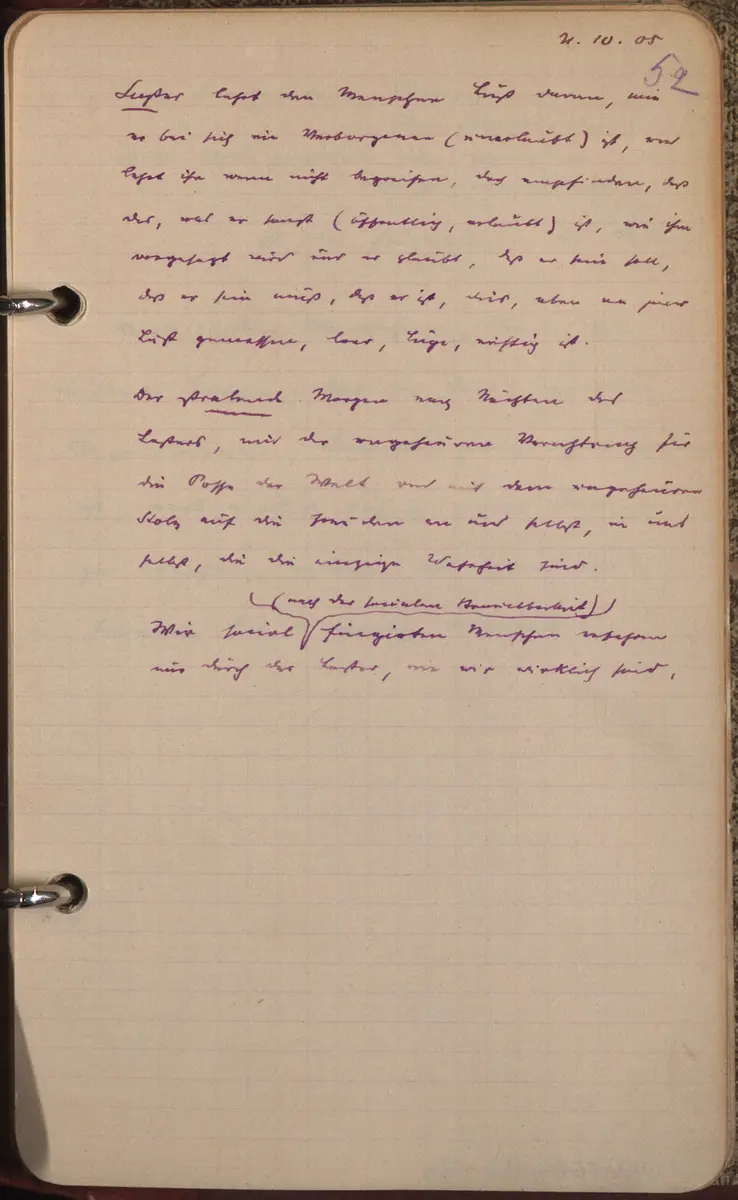 21. 10. 05
52
Laster lehrt den Menschen Lust daran, wie
er bei sich im Verborgenen (unerlaubt) ist, und
lehrt ihn wenn nicht begreifen, doch empfinden, daß
das, was er sonst (öffentlich, erlaubt) ist, wie ihm
vorgesagt wird und er glaubt, daß er sein soll,
daß er sein muß, daß er ist, dies, eben an jener
Lust gemessen, leer, Lüge, nichtig ist.
Der stralende Morgen nach Nächten des
Lasters, mit der ungeheuren Verachtung für
die Posse der Welt und mit dem ungeheuren
Stolz auf die in uns selbst, in uns
selbst, die die einzige Wahrheit sind.
(nach der socialen)
Wir social fingirten Menschen erfahren
nur durch das Laster, wie wir wirklich sind.